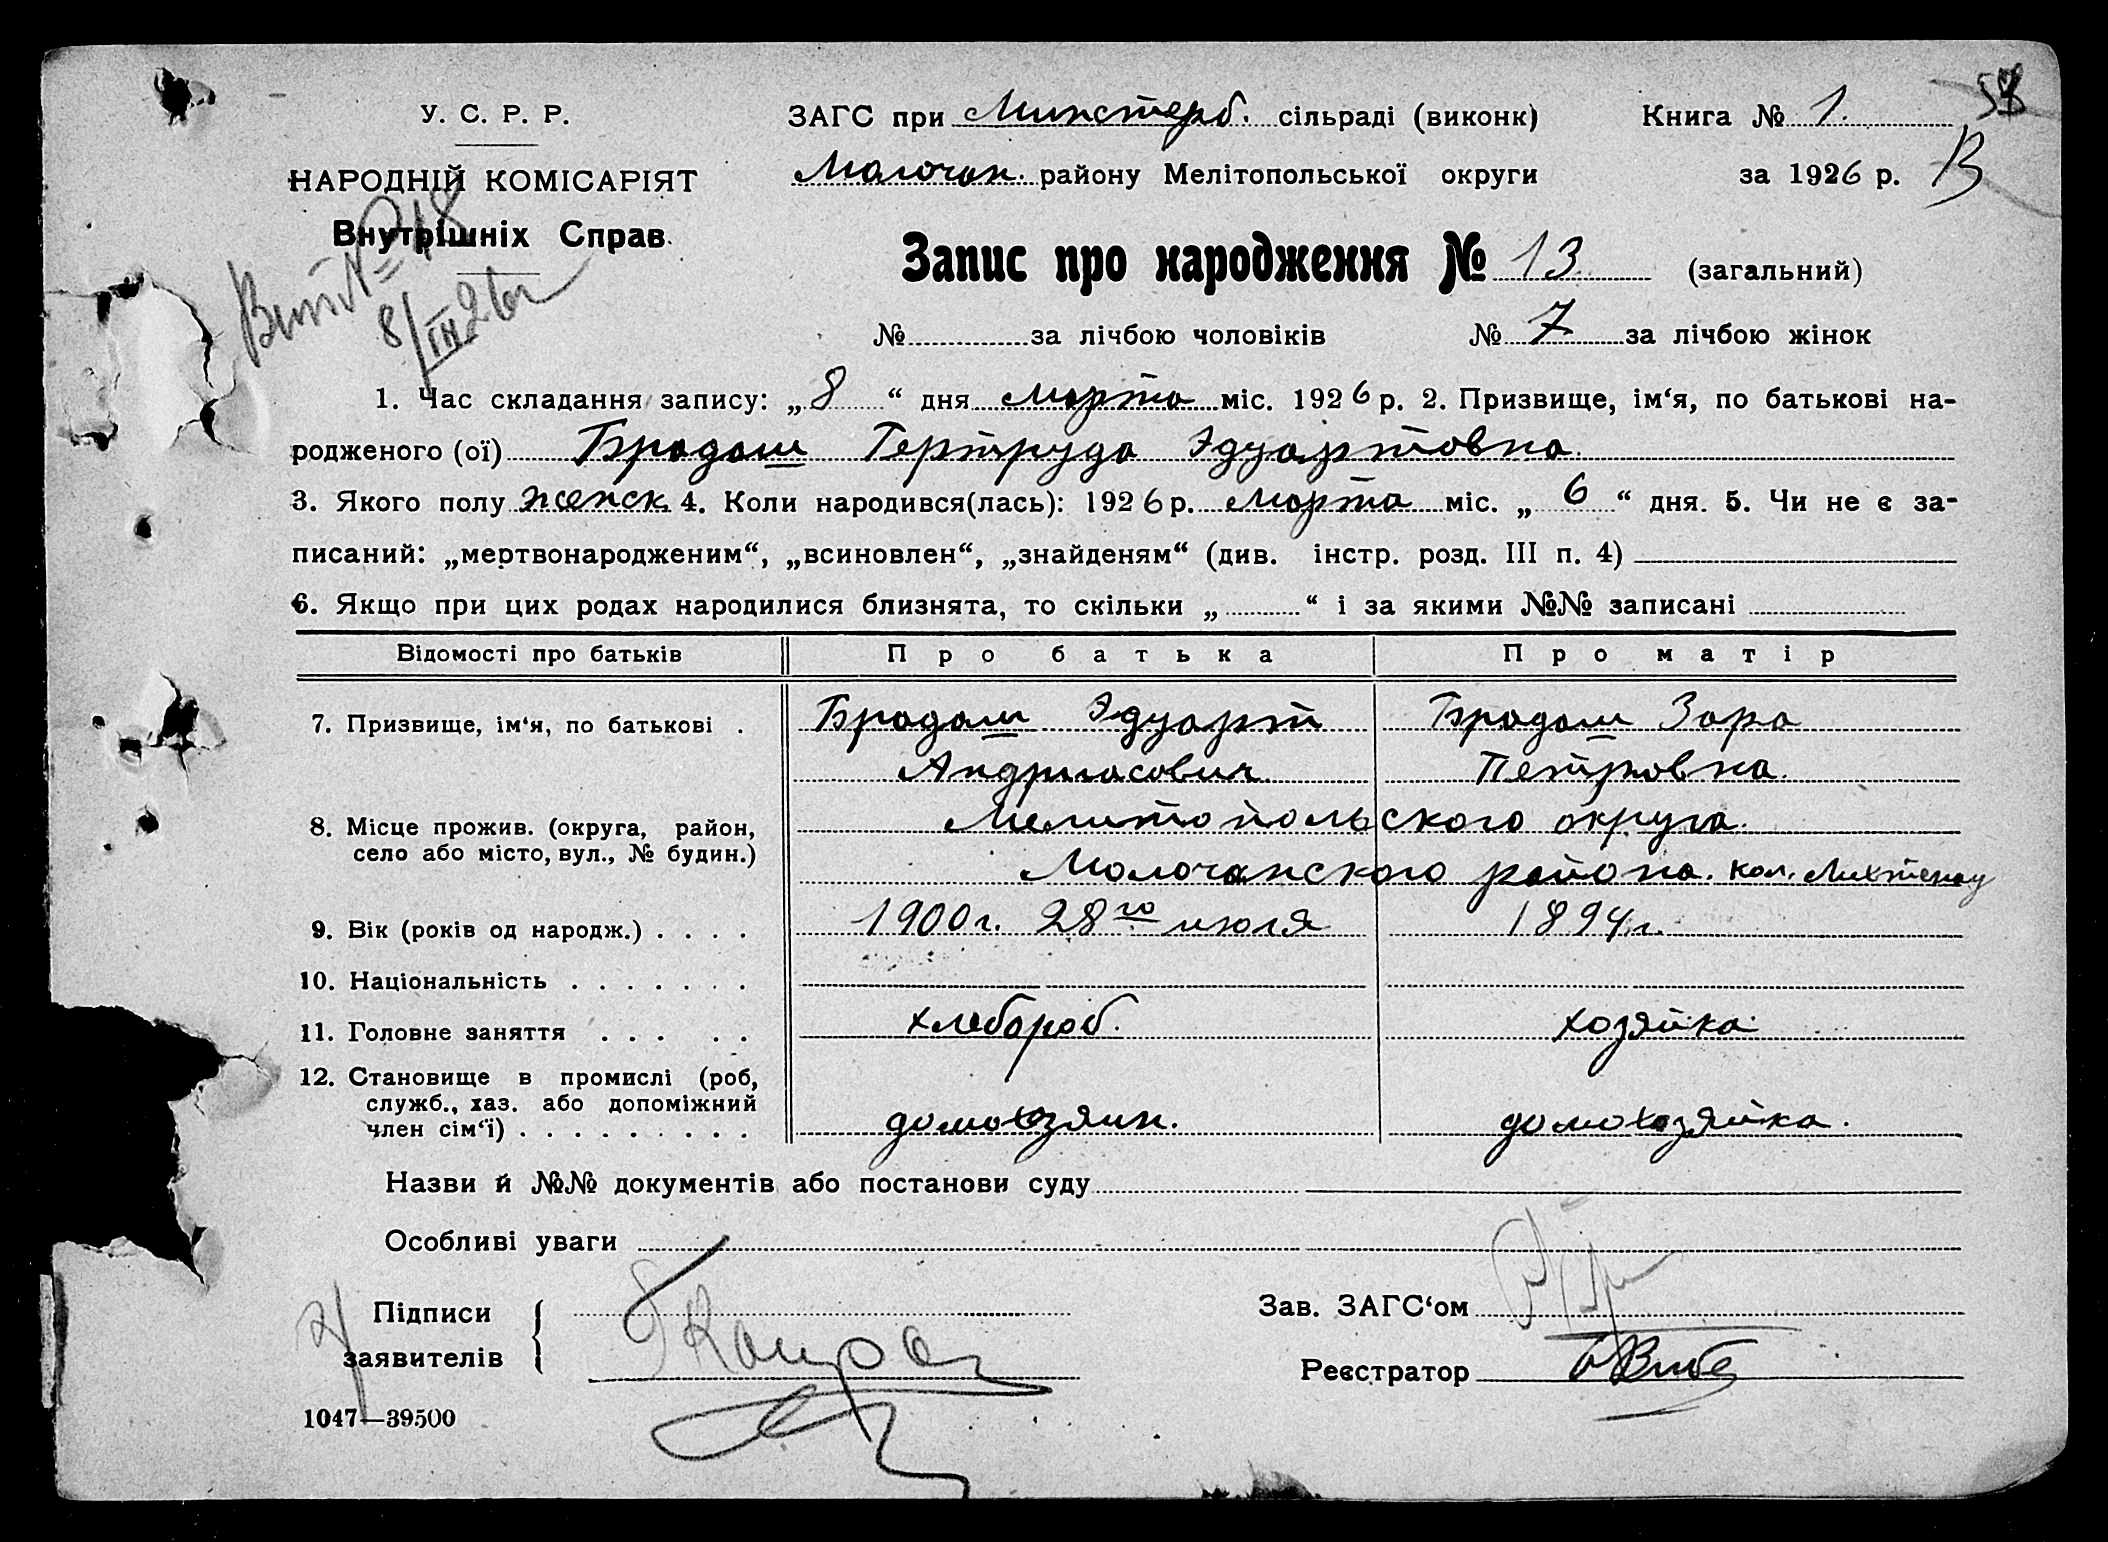 58
У. С. Р. Р.
ЗАГС при Минстерб. сільраді (виконк)
Книга № 1.
НАРОДНІЙ КОМІСАРІЯТ
Молочан. району Мелітопольської округи
за 1926 р. В
Внутрішніх Справ.
Запис про народження № 13 (загальний)
8/III 26 г
№ за лічбою чоловіків № 7 за лічбою жінок
1. Час складання запису: „8“ дня марта міс. 1926 р. 2. Призвище, ім‘я, по батькові на-
родженого (ої) Бродаш Гертруда Эдуартовна.
3. Якого полу женск. 4. Коли народився(лась): 1926 р. марта міс. „6“ дня. 5. Чи не є за-
писаний: „мертвонародженим“, „всиновлен“, „знайденям“ (див. інстр. розд. III п. 4)
6. Якщо при цих родах народилися близнята, то скільки „ “ і за якими №№ записані
Відомості про батьків Про батька Про матір
7. Призвище, ім‘я, по батькові . Бродаш Эдуарт Бродаш Зара
Андриасович Петровна.
8. Місце прожив. (округа, район, Мелитопольского округа.
село або місто, вул., № будин.) Молочанского района. кол. Лихтенау
9. Вік (років од народж.) . . . . 1900 г. 28го июля 1894 г.
10. Національність . . . . . . .
11. Головне заняття . . . . . хлебороб. хозяйка
12. Становище в промислі (роб,
служб., хаз. або допоміжний
член сім‘ї) . . . . . . . . . домохозяин. домохозяйка.
Назви й №№ документів або постанови суду
Особливі уваги
Підписи
заявителів
Зав. ЗАГС‘ом
Реєстратор
1047—39500